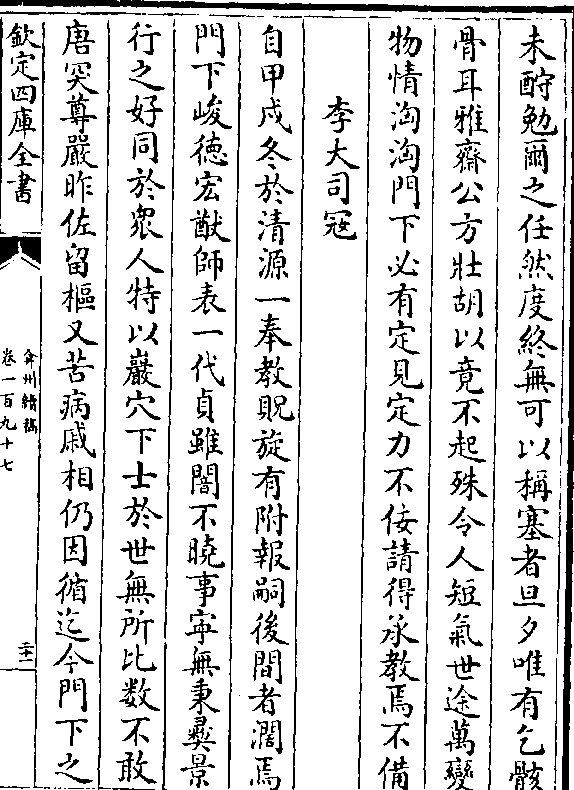 未酧勉爾之任然度終無可以稱塞者旦夕唯有乞骸
骨耳雅齋公方壯胡以竟不起殊令人短氣世途萬變
物情洶洶門下必有定見定力不佞請得承教焉不備
李大司寇
自甲戌冬於清源一奉教貺旋有附報嗣後間者濶焉
門下峻徳宏猷師表一代貞雖闇不曉事寧無秉彛景
行之好同於衆人特以巖穴下士於世無所比数不敢
唐突尊嚴昨佐留樞又苦病戚相仍因循迄今門下之
欽定四庫全書
弇州續稿
卷一百九十七
二十一